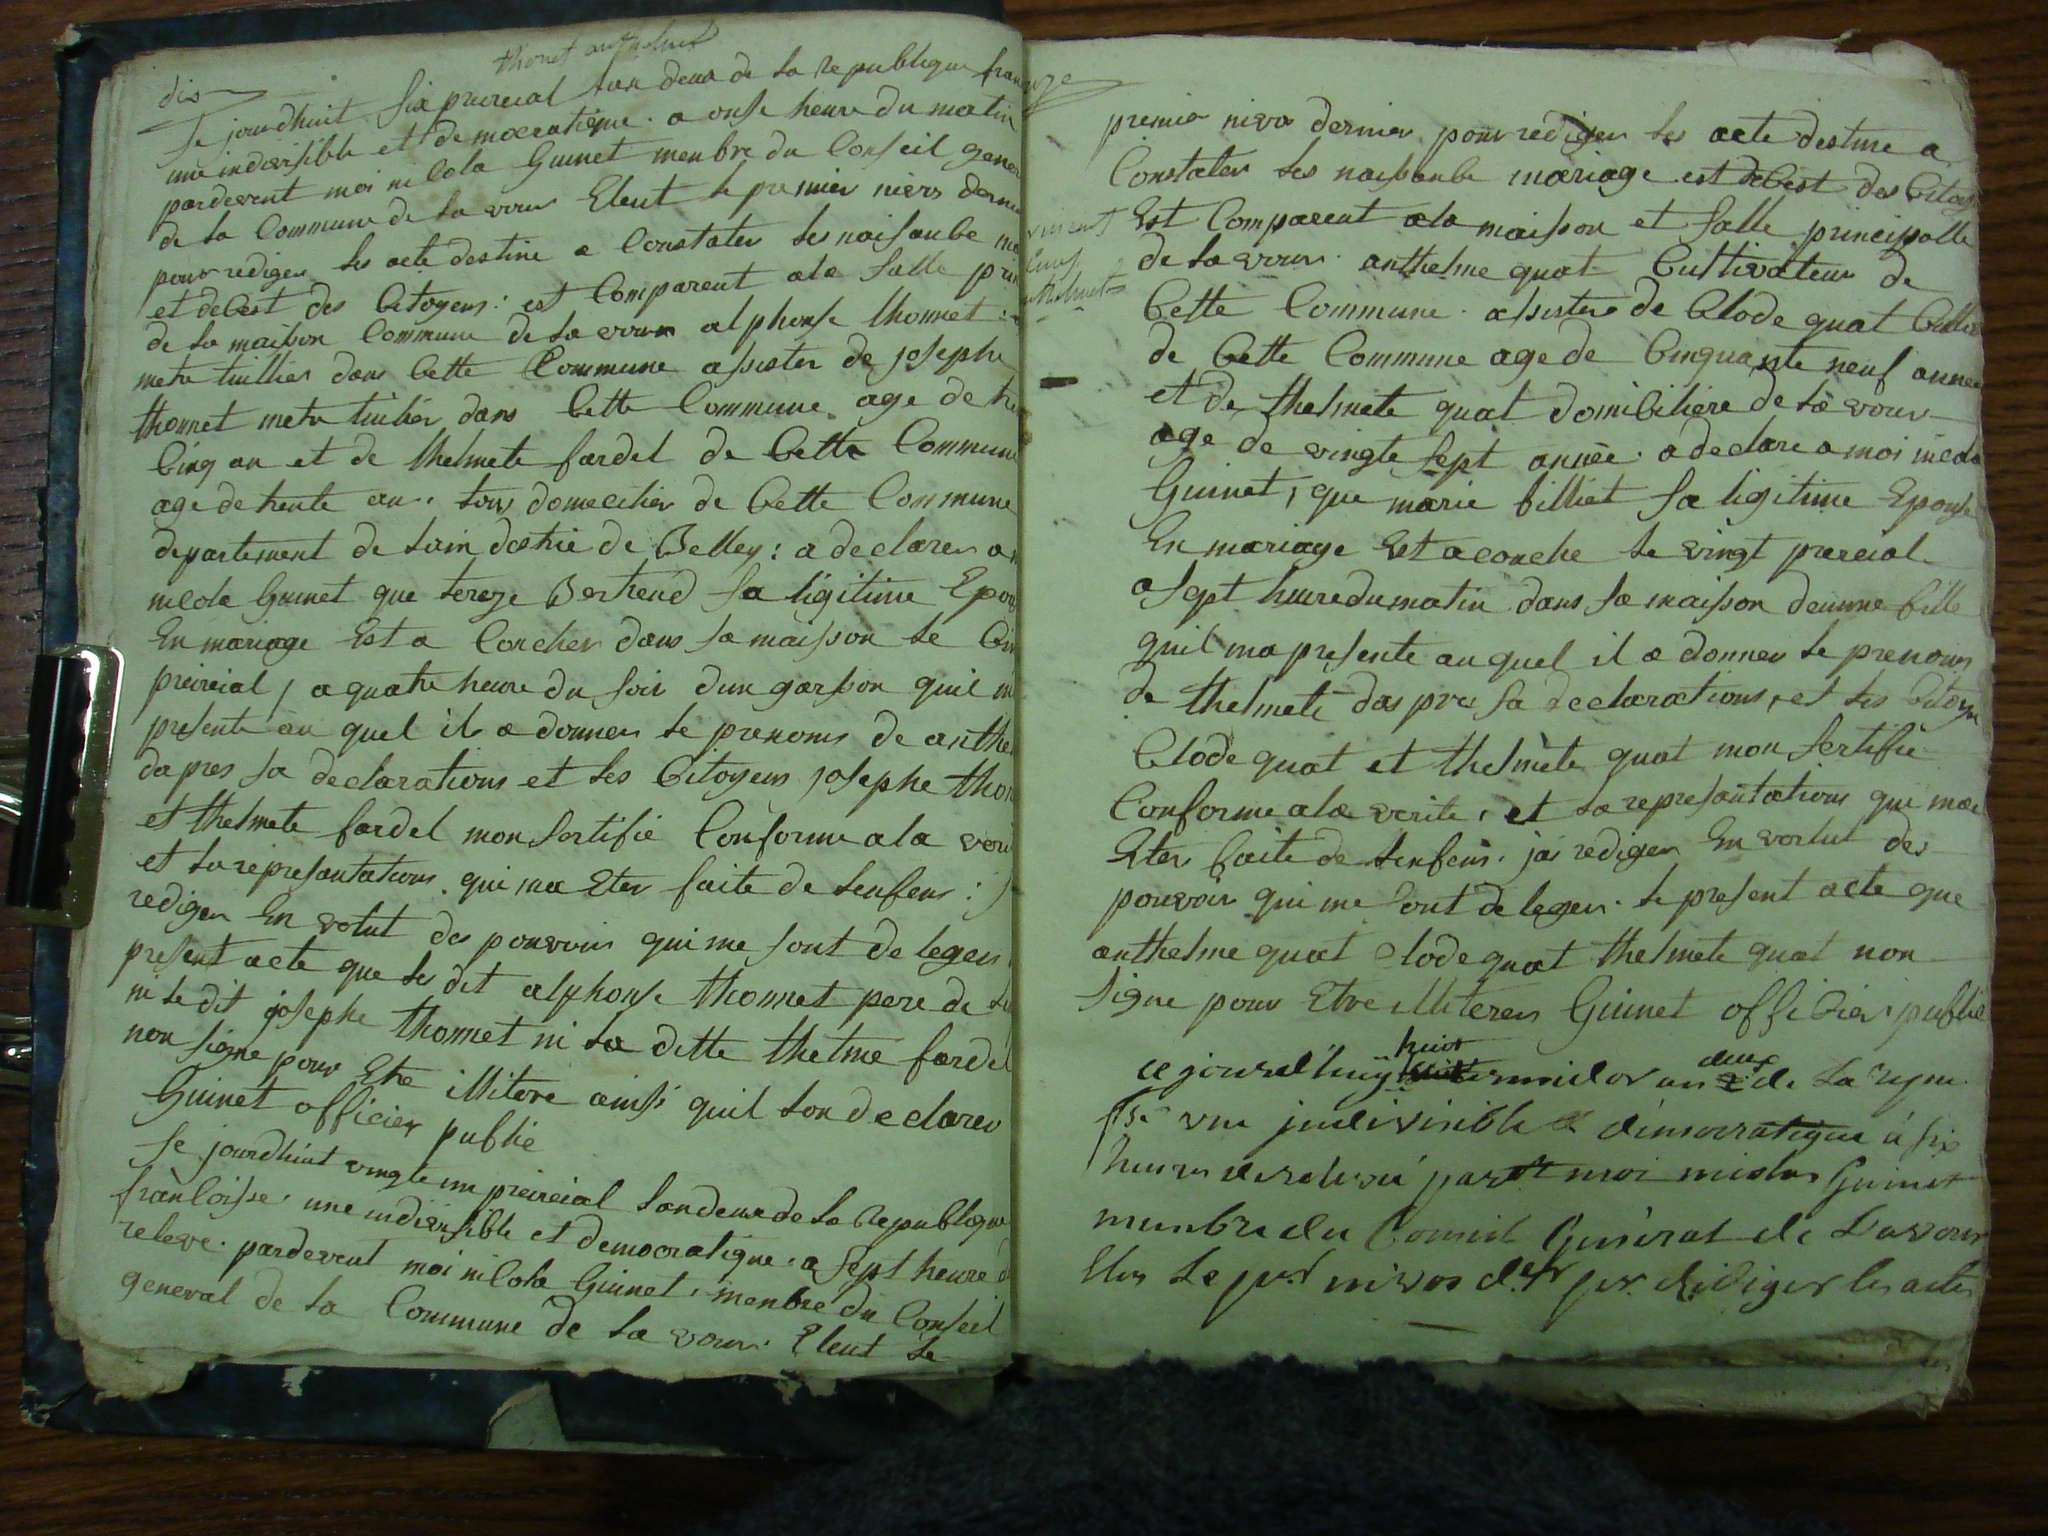 thonet anthelme
dis
Le jourdhuit six prereial lan deux de la republique fran
une indivisible et democratique. a onse heure du matin
pardevent moi nicola Guinet menbre du Conseil gene
de la Commune de la vour Eleut le premier nivos dernie
pour rediger les acte destine a Constater les naisanbe ma
et debest des bitoyens: est Comparent ala salle prin
de la maison Commune de la vour alphonse thonnet
metre tuillier dans bette Commune assister de josephe
thonnet metre tuilier dans bette Commune age de
binq an et de thelmete fardel de bette Commune
age de trente an. tous domecilier de bette Commune
departement de lain destrie de Belley: a declarer a
nicola Guinet que tereze Bertrend sa ligitime Epous
En mariage Est a Coucher dans sa maison le
preireial, a quatre heure du soir dun garson quil m
presente au quel il a donner le prenoms de anthe
dapres sa declarations et les bitoyens josephe thon
et thelmete fardel mon sertifié Conforme ala veri
et la represantations qui ma Eter faite de lenfens: j
rediger En vertut des pouvoir qui me sont deleger
present acte que les dit alphonse thonnet pere de
ni le dit josephe thonnet ni la ditte thelme fardel
non signe pour Etre illitere ainsi quil lon declarer
Guinet officier public
Le jourdhuit vingte un preireial lan deux de la Republique
franboisse. une indivisible et democratique. a sept heure
relevé. pardevent moi nicola Guinet. menbre du Conseil
general de la Commune de la vour. Eleut le
onze
premier nivos dernier pour rediger les acte destine a
Constater les naissanbe mariage et debest des bitoy
Est Comparent ala maisson et salle principalle
de la vour. anthelme quat bultivateur de
bette Commune. assistere de blode quat bulti
de bette Commune age de binquante neuf annee
et de thelmete quat domibiliere de la vour
age de vingte sept année. a declare a moi nicola
Guinet, que marie billiet sa ligitime Epouse
En mariage Est acouche le vingt prereial
a sept heure du matin dans sa maisson deunne fille
quil ma presente au quel il a donner le prenoms
de thelmete das pres sa declarations, et les bitoyen
blode quat et thelmete quat mon sertifié
Conforme ala verite, et la represantations qui ma
Eter faite de lenfens. jai rediger En vertut des
pouvoir qui me sont deleger. le present acte que
anthelme quat Clode quat thelmete quat non
signe pour Etre illiterer Guinet officier public
huit deux
ce jourd'huy messidor an de la repu
fse une indivisible et démocratique à six
heures de relevé pardt moi nicolas Guinet
membre du Conseil Général de Lavour
Elus le per nivos der pr rediger les actes